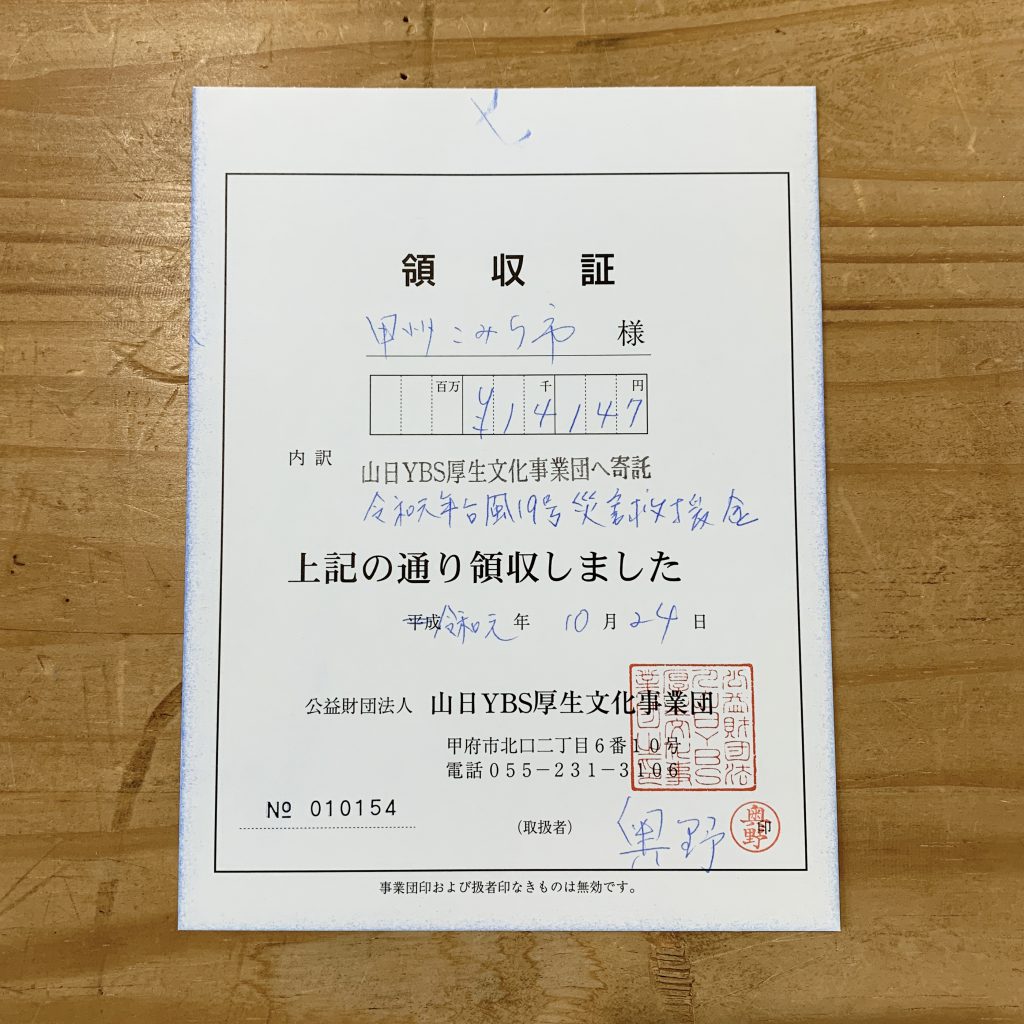 領収証
甲州こみち市 様
百万 千 円
¥14147
内訳 山日YBS厚生文化事業団へ寄託
令和元年台風19号災害救援金
上記の通り領収しました
平成令和元年 10月24日
公益財団法人 山日YBS厚生文化事業団
甲府市北口二丁目6番10号
電話055-231-3106
№ 010154
(取扱者) 奥野 印
奥野
事業団印および扱者印なきものは無効です。